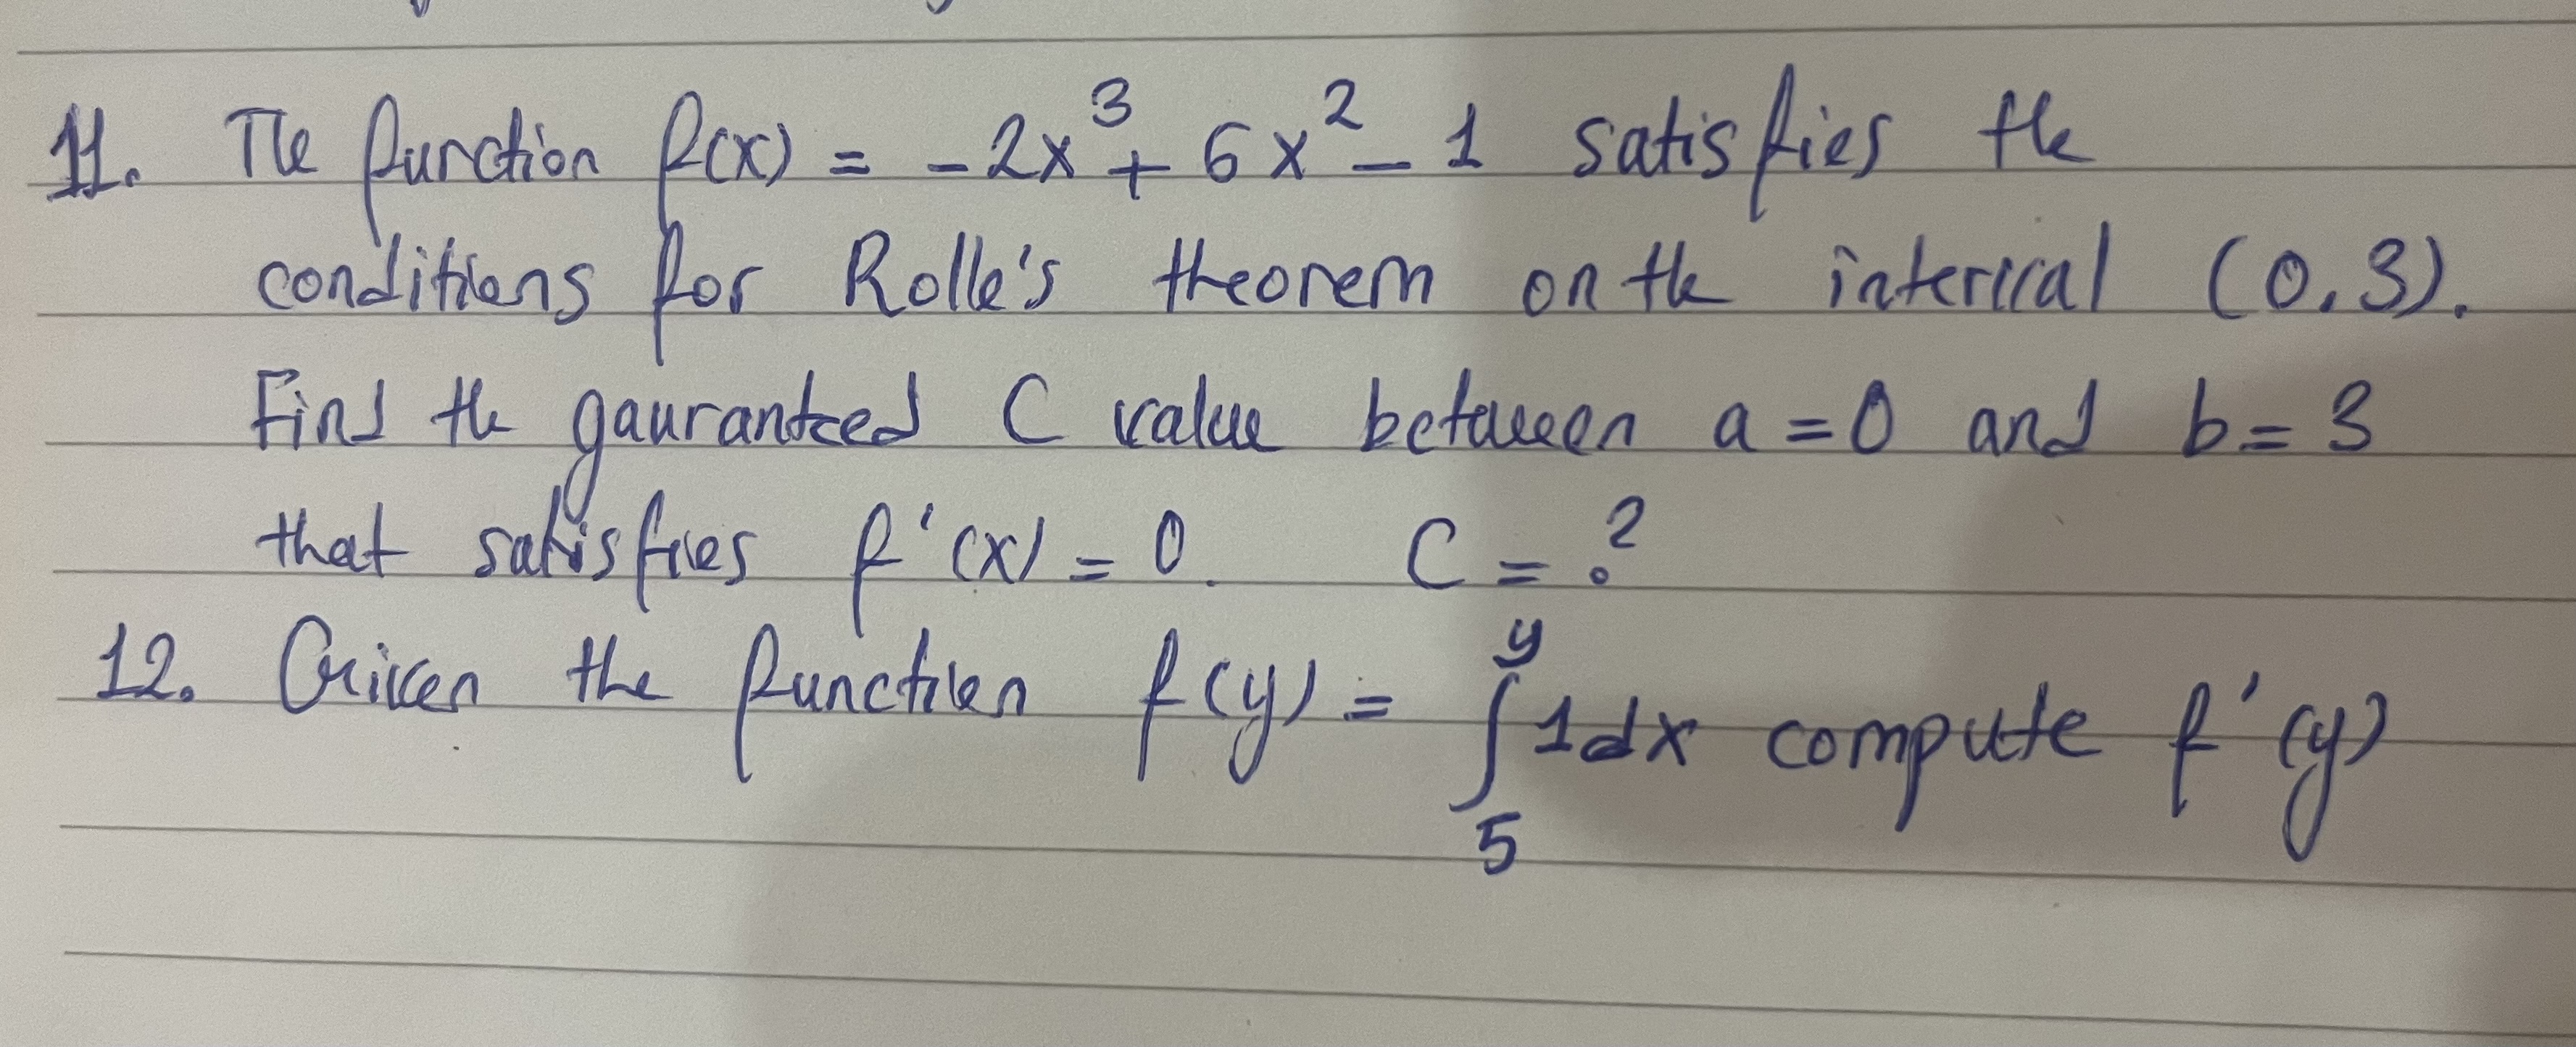 11. The function f(x) = -2x³ + 6x² - 1 satisfies the
conditions for Rolle's theorem on the interval (0,3).
Find the gauranteed C value between a = 0 and b = 3
that satisfies f'(x) = 0. C = ?
12. Given the function f(y) = ∫₅ʸ 1dx compute f'(y)